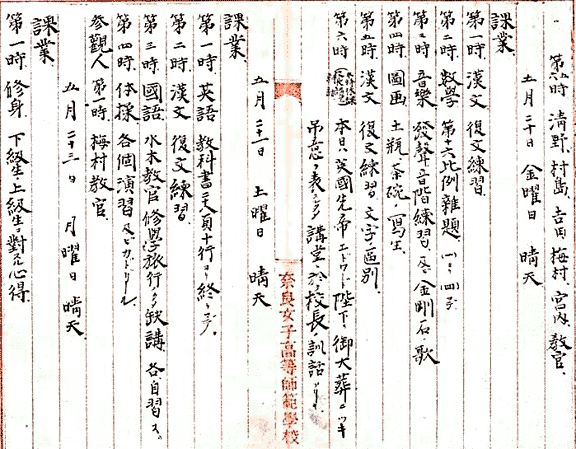 第六時 清野、村島、吉田、梅村、宮内、教官。
五月二十日 金曜日 晴天
課業
第一時 漢文 復文練習
第二時 数学 第十六比例雑題、(一)ヨリ(四)マデ
第三時 音樂 發聲音階練習、及ビ金剛石ノ歌
第四時 圖画 土瓶、茶碗ノ寫生
第五時 漢文 復文練習、文字ノ區別
第六時 本日ハ英國先帝エドワード陛下ノ御大葬ニツキ
吊意ヲ表スル為メ講堂ニ於テ校長ノ訓話アリ
奈良女子高等師範學校
五月二十一日 土曜日 晴天
課業
第一時 英語 教科書二頁十行ヨリ終マデ。
第二時 漢文 復文練習
第三時 國語 水木教官修學旅行ノ為欠講 各自習ス。
第四時 体操 各個演習及ビカドリール
参觀人 第一時、梅村教官
五月二十三日 月曜日 晴天
課業
第一時 修身 下級生ノ上級生ニ對スル心得